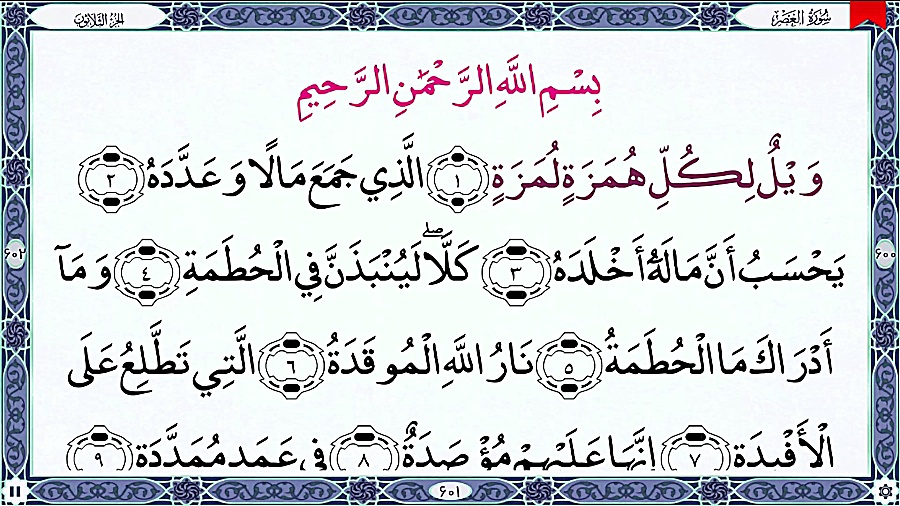 سُورَةُ العَصْرِ
الجزء الثلاثون
بِسْمِ اللَّهِ الرَّحْمَٰنِ الرَّحِيمِ
وَيْلٌ لِكُلِّ هُمَزَةٍ لُمَزَةٍ ١ الَّذِي جَمَعَ مَالًا وَعَدَّدَهُ ٢
يَحْسَبُ أَنَّ مَالَهُ أَخْلَدَهُ ٣ كَلَّا ۖ لَيُنْبَذَنَّ فِي الْحُطَمَةِ ٤ وَمَآ
أَدْرَاكَ مَا الْحُطَمَةُ ٥ نَارُ اللَّهِ الْمُوقَدَةُ ٦ الَّتِي تَطَّلِعُ عَلَى
الْأَفْئِدَةِ ٧ إِنَّهَا عَلَيْهِمْ مُؤْصَدَةٌ ٨ فِي عَمَدٍ مُمَدَّدَةٍ ٩
٦٠٠
٦٠٢
٦٠١